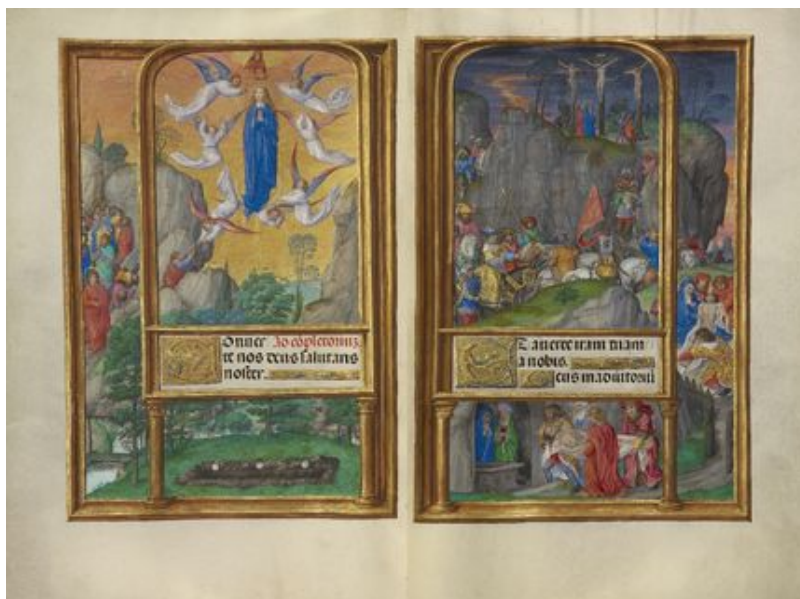 Onver Ad cōpletorium.
te nos deus salutaris
noster.
Et averte iram tuam
a nobis.
eus in adiutoriū